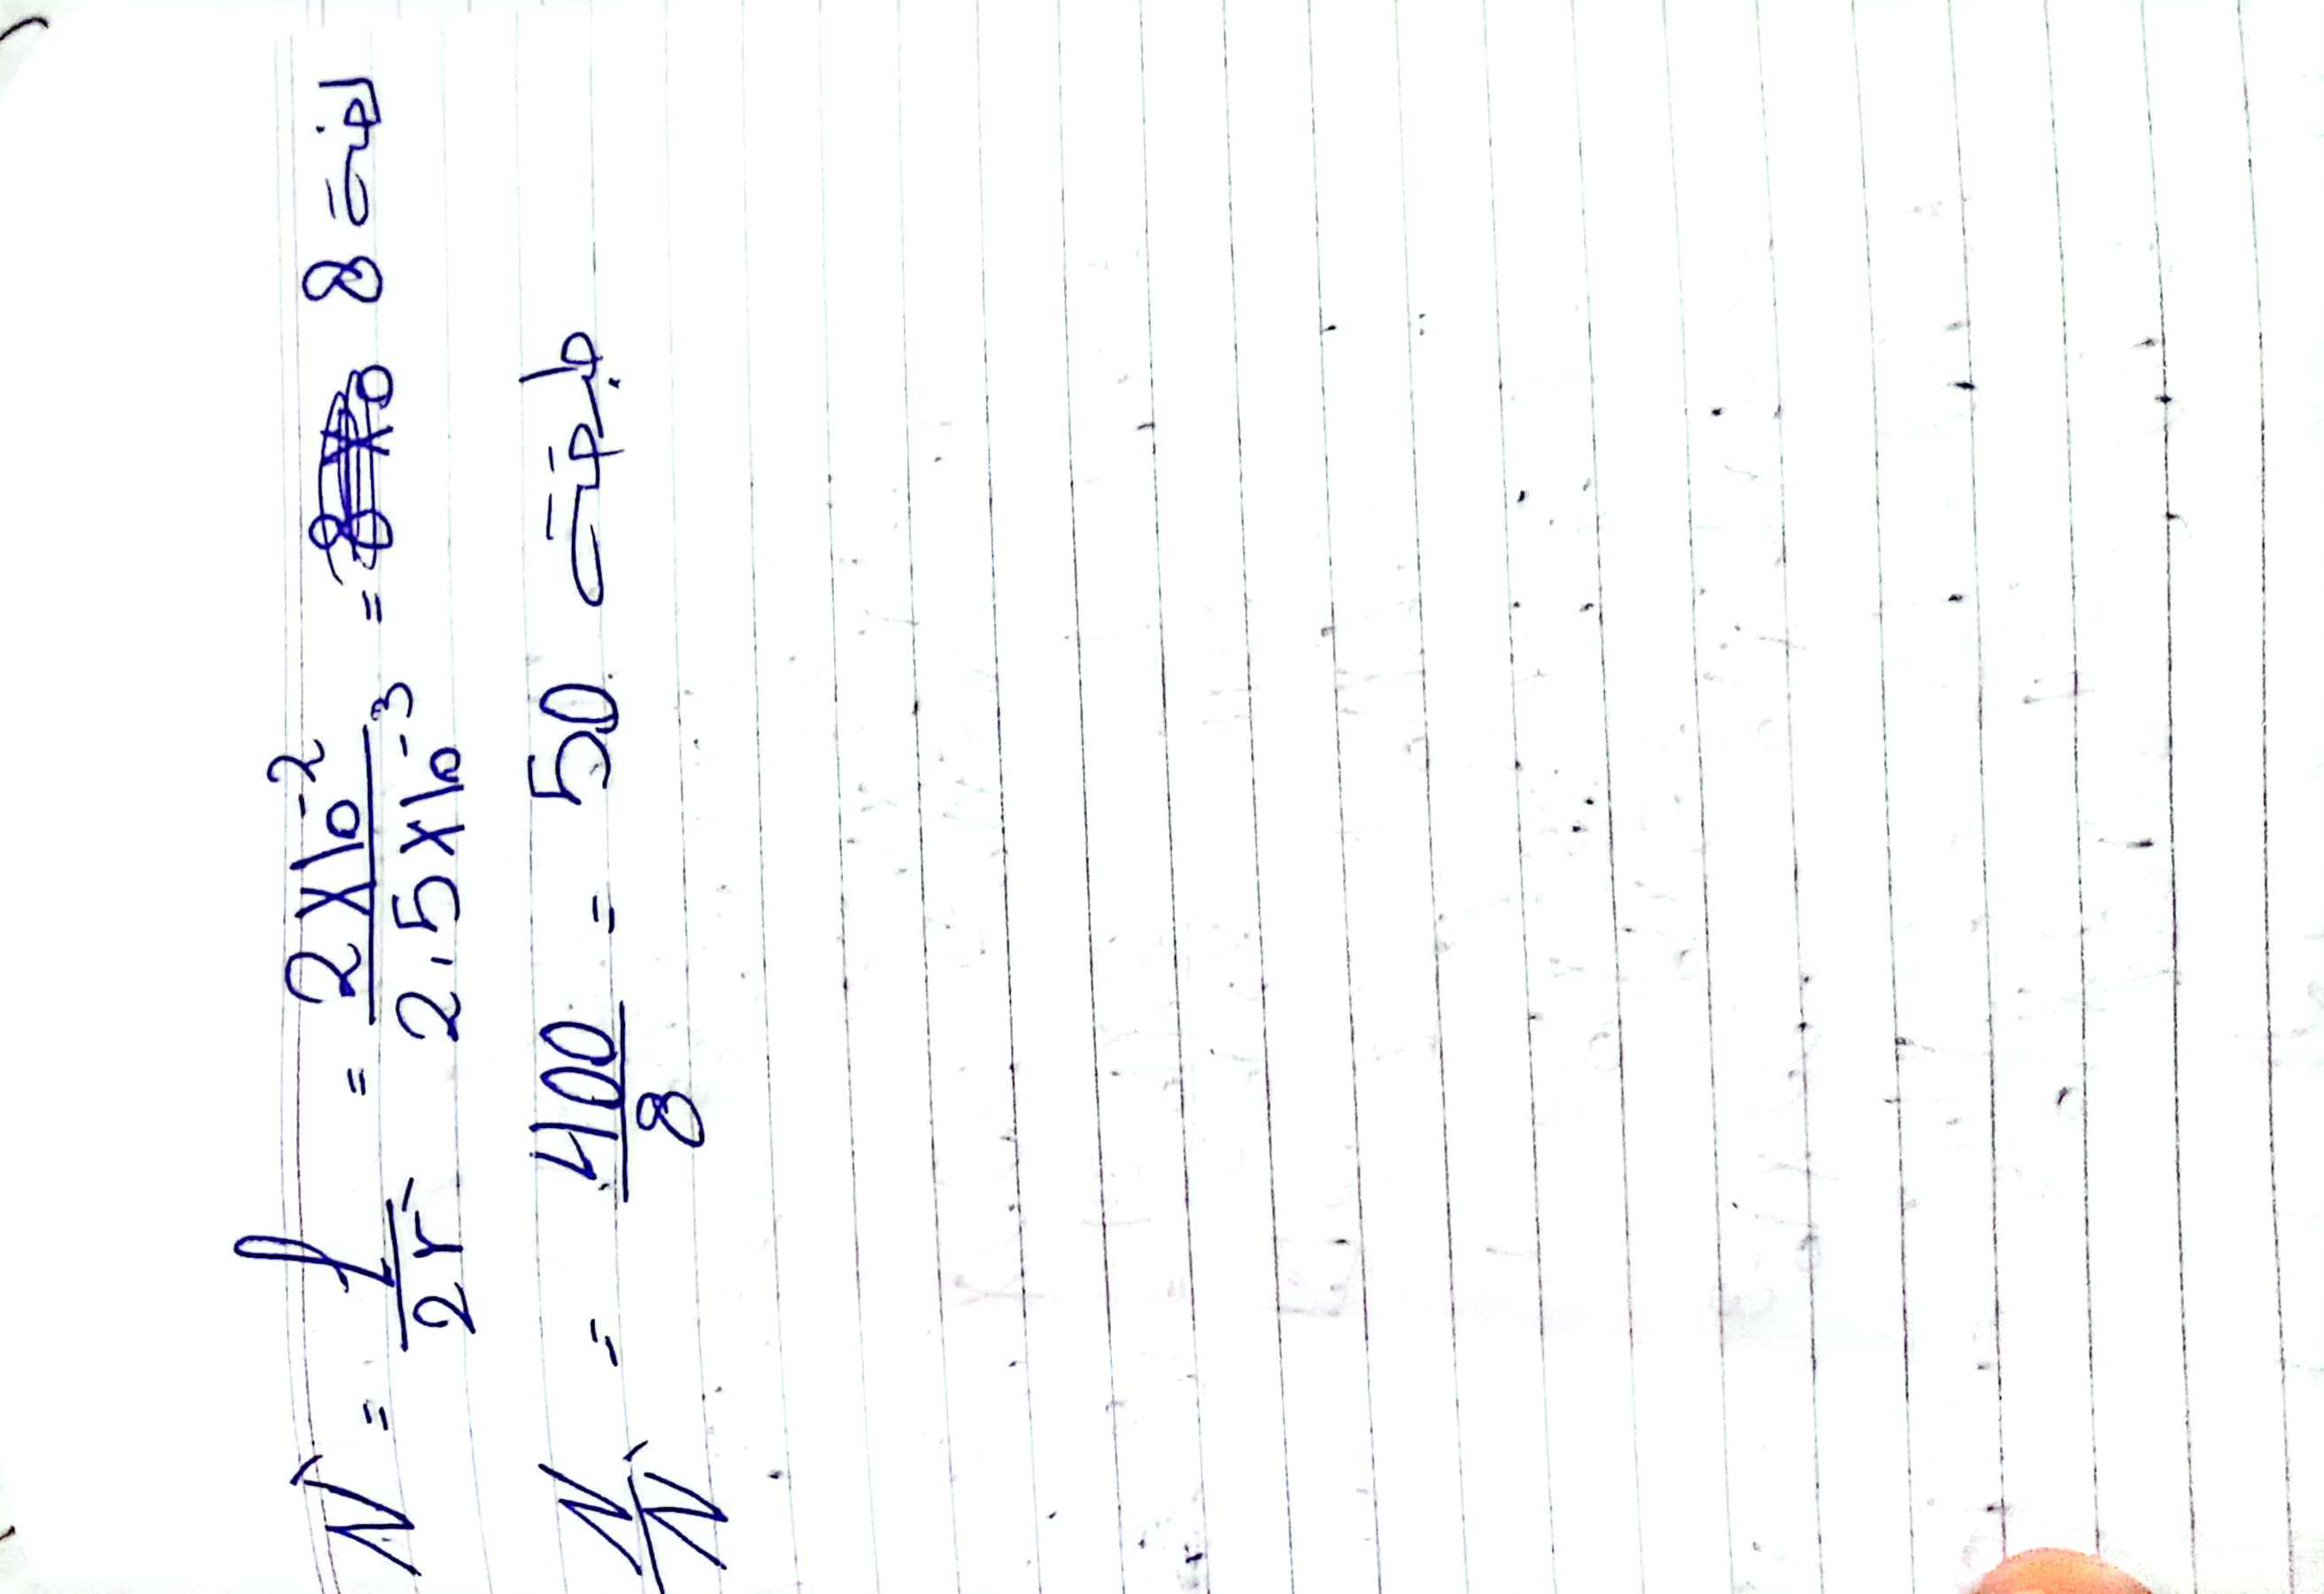 N` = l / 2r` = 2×10^-2 / 2.5×10^-3 = 8 لفة
N / N` = 400 / 8 = 50 طبقة